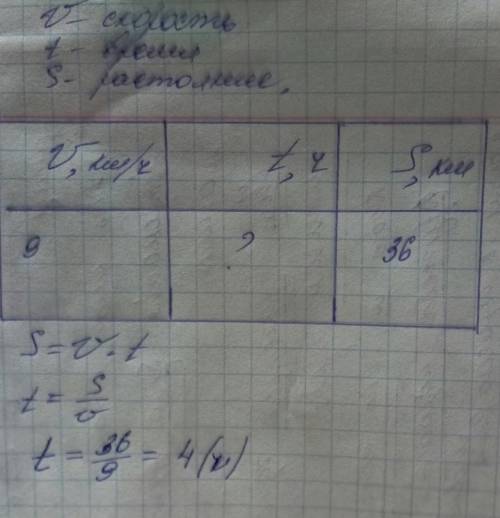 V - скорость
t - время
S - растояние,
V, км/ч t, ч S, км
9 ? 36
S = V · t
t = S/v
t = 36/9 = 4 (ч)